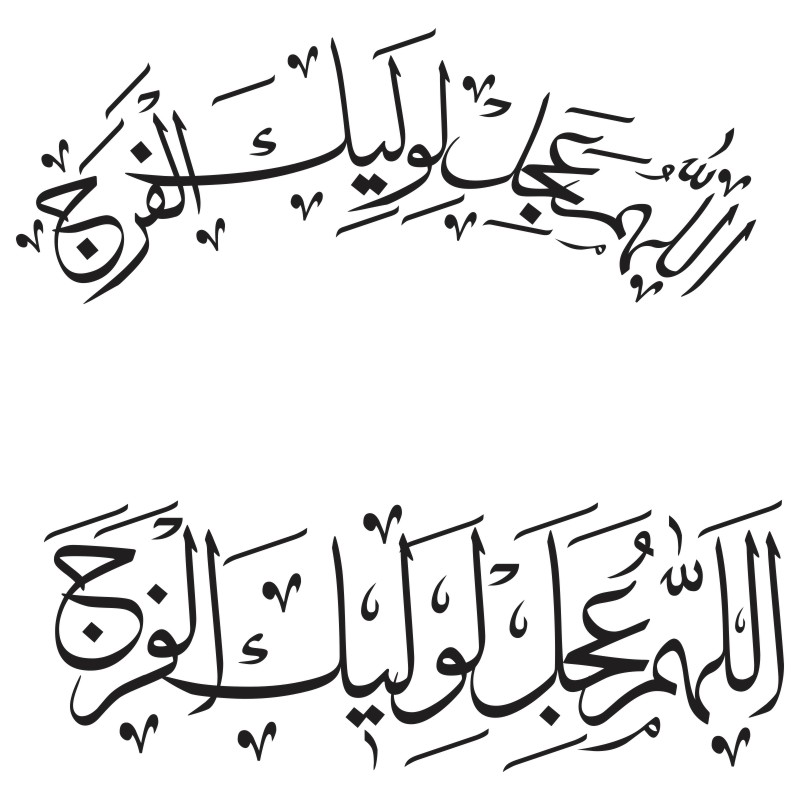 اللهم عجل لوليك الفرج
اللهم عجل لوليك الفرج